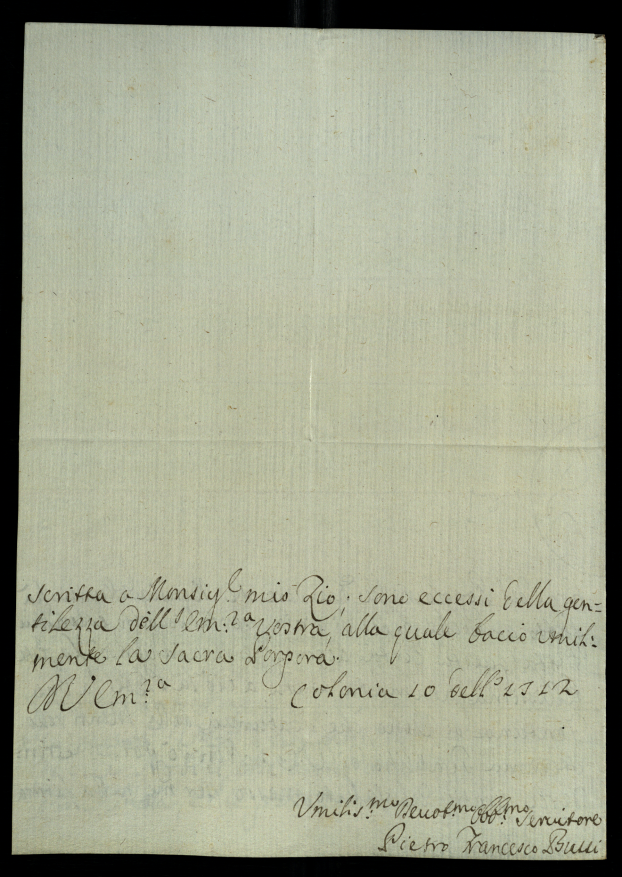 scritta a Monsig.r mio Zio; sono eccessi della gen=
tilezza dell'Em.za Vostra, alla quale bacio umil=
mente la Sacra Porpora.
Em.za Colonia 10 dell
Umilis.mo Devot.mo Obb.mo Servitore
Pietro Francesco Bussi